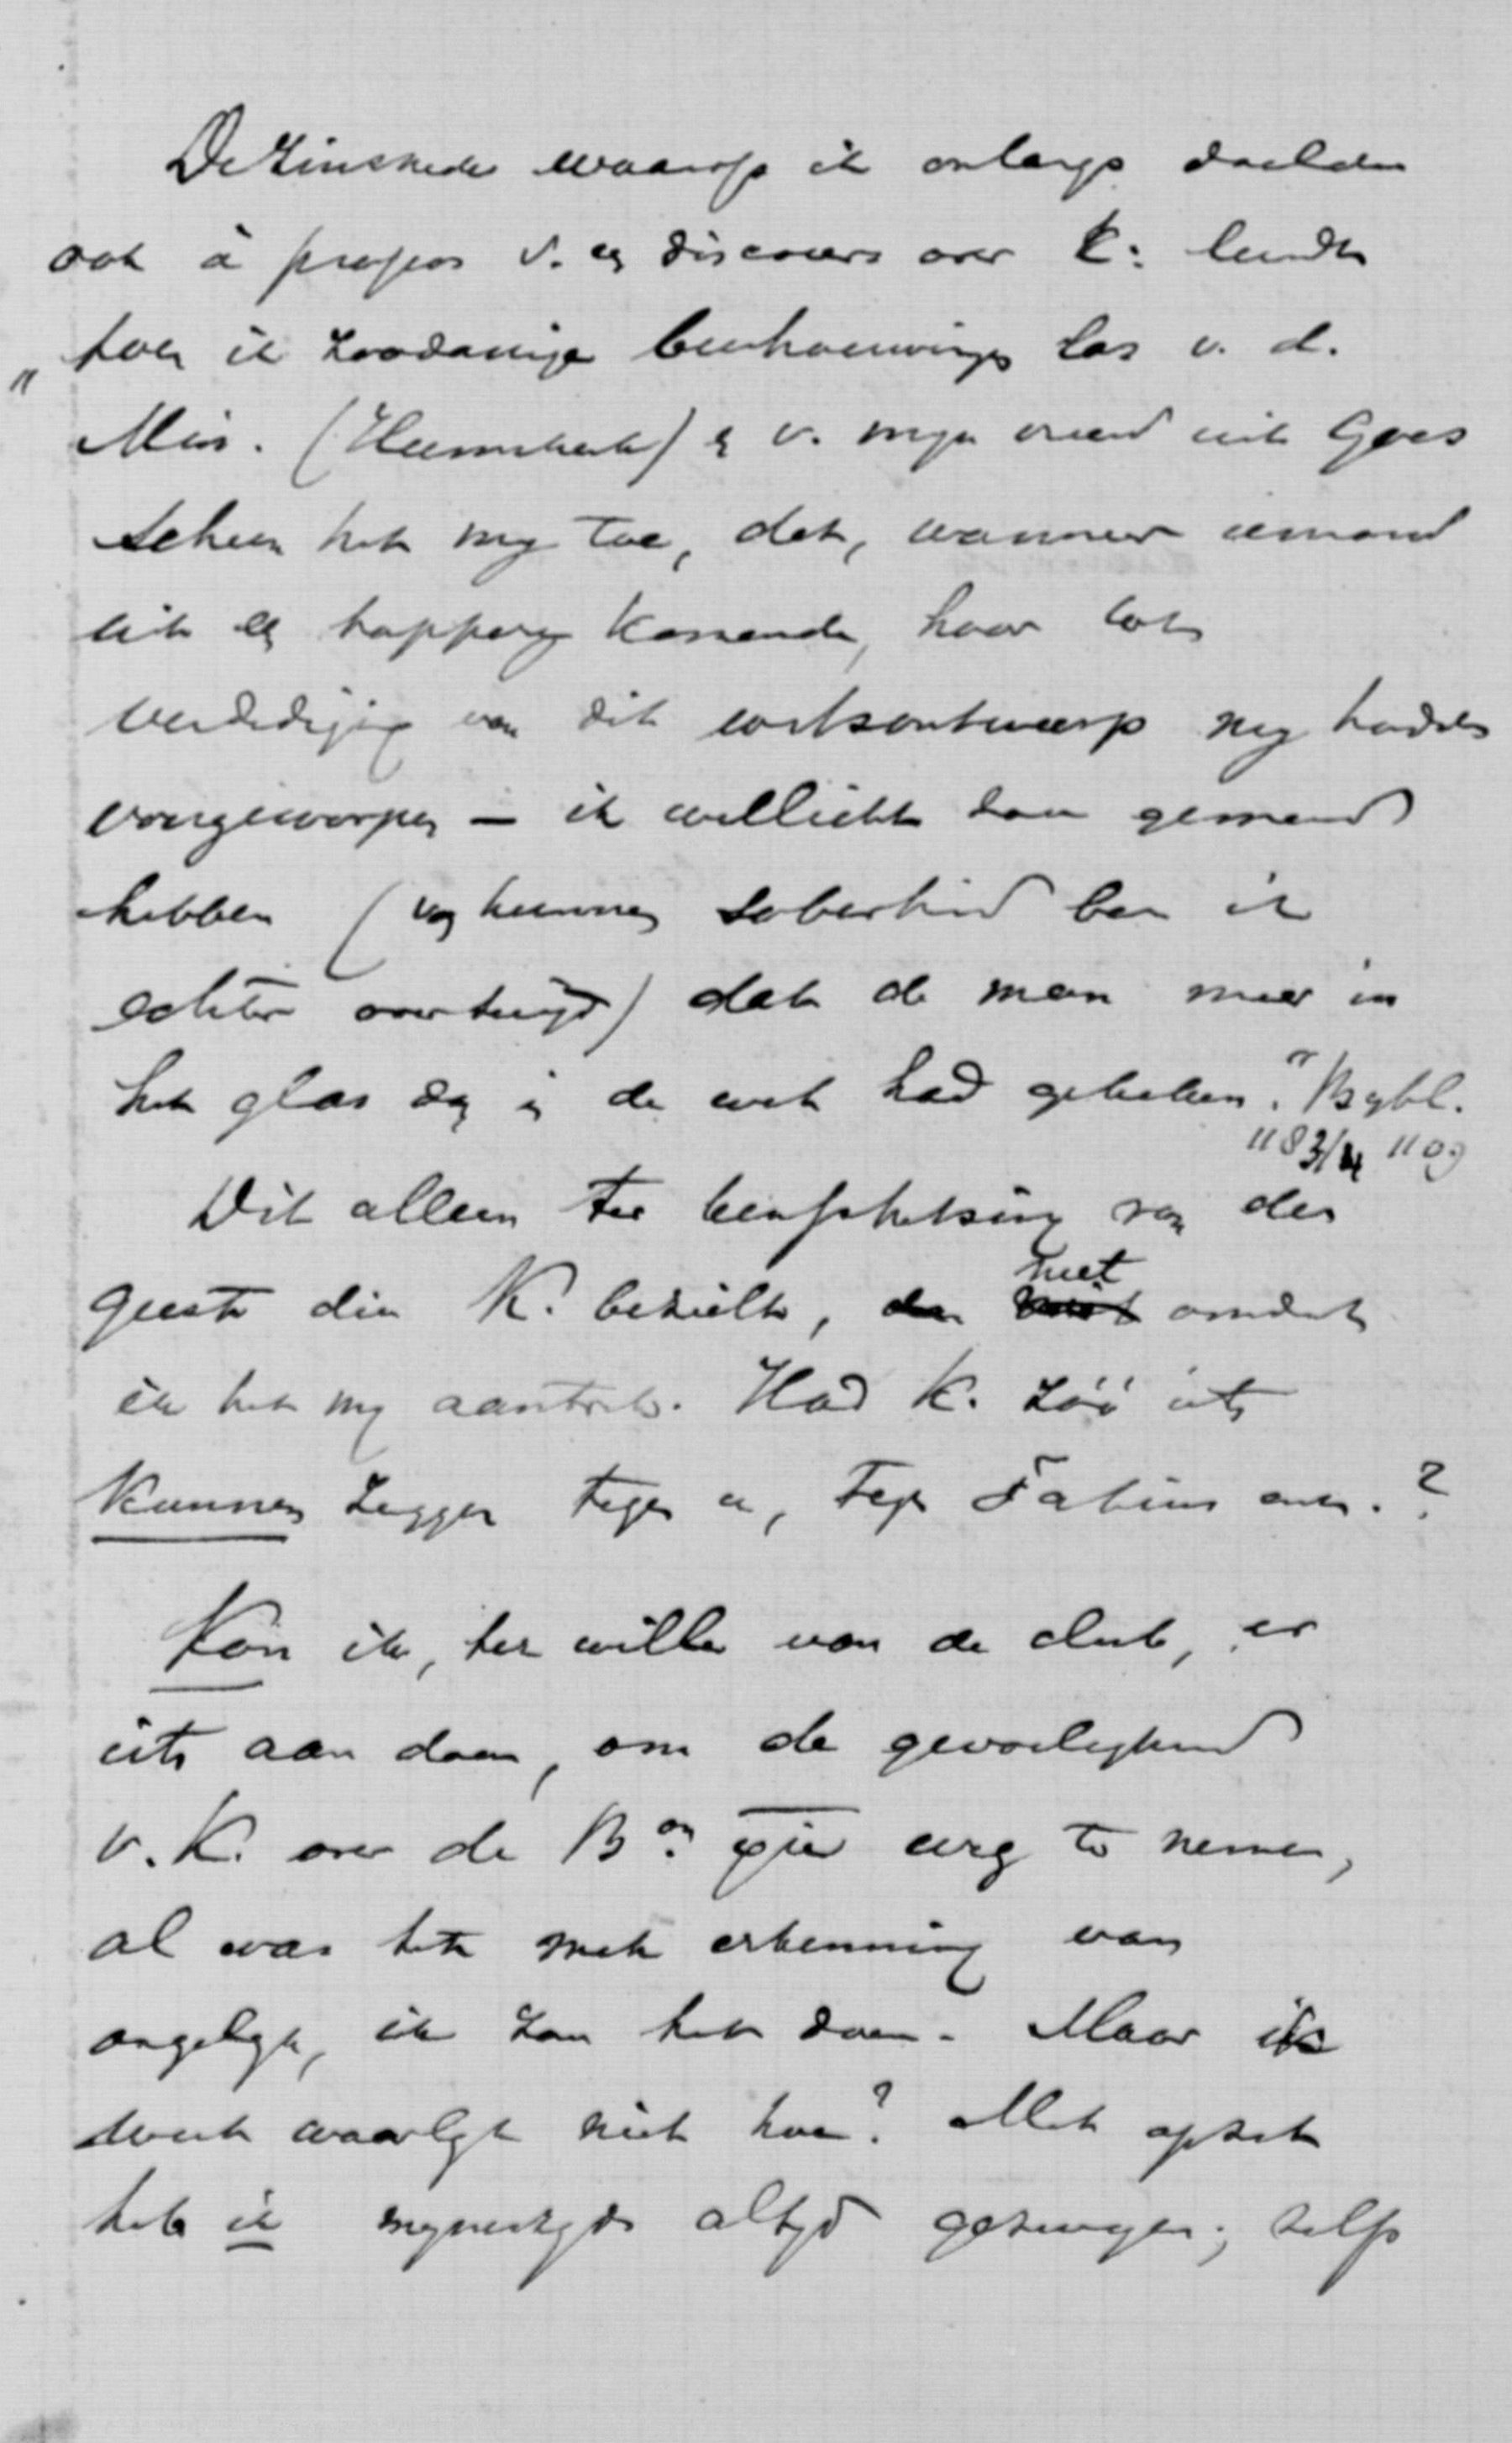 De zinsnede waarop ik onlangs doelde
ook à propos v. een discours over K: luidt
„toen ik zoodanige beschouwingen las v. d.
Min. (Heemskerk) & v. mijn vriend uit Goes
scheen het mij toe, dat, wanneer iemand
uit een kapperij komende, haar tot
verdediging van dit wetsontwerp mij hadde
voorgeworpen — ik wellicht zou gemeend
hebben (van hunne soberheid ben ik
echter overtuigd) dat de man meer in
het glas dan in de wet had gekeken." Bijbl.
1183/84 1109
Dit alleen ter kenschetsing van den
geest die K. bezielt, niet omdat
ik het mij aantrek. Had K. zóó iets
kunnen zeggen tegen u, tegen Fabius enz.?
Kon ik, ter wille van de club, er
iets aan doen, om de gevoeligheid
v. K. over de Bon weg te nemen,
al was het met erkenning van
ongelijk, ik zou het doen. Maar ik
weet waarlijk niet hoe? Met opzet
heb ik mijnerzijds altijd gezwegen; zelfs